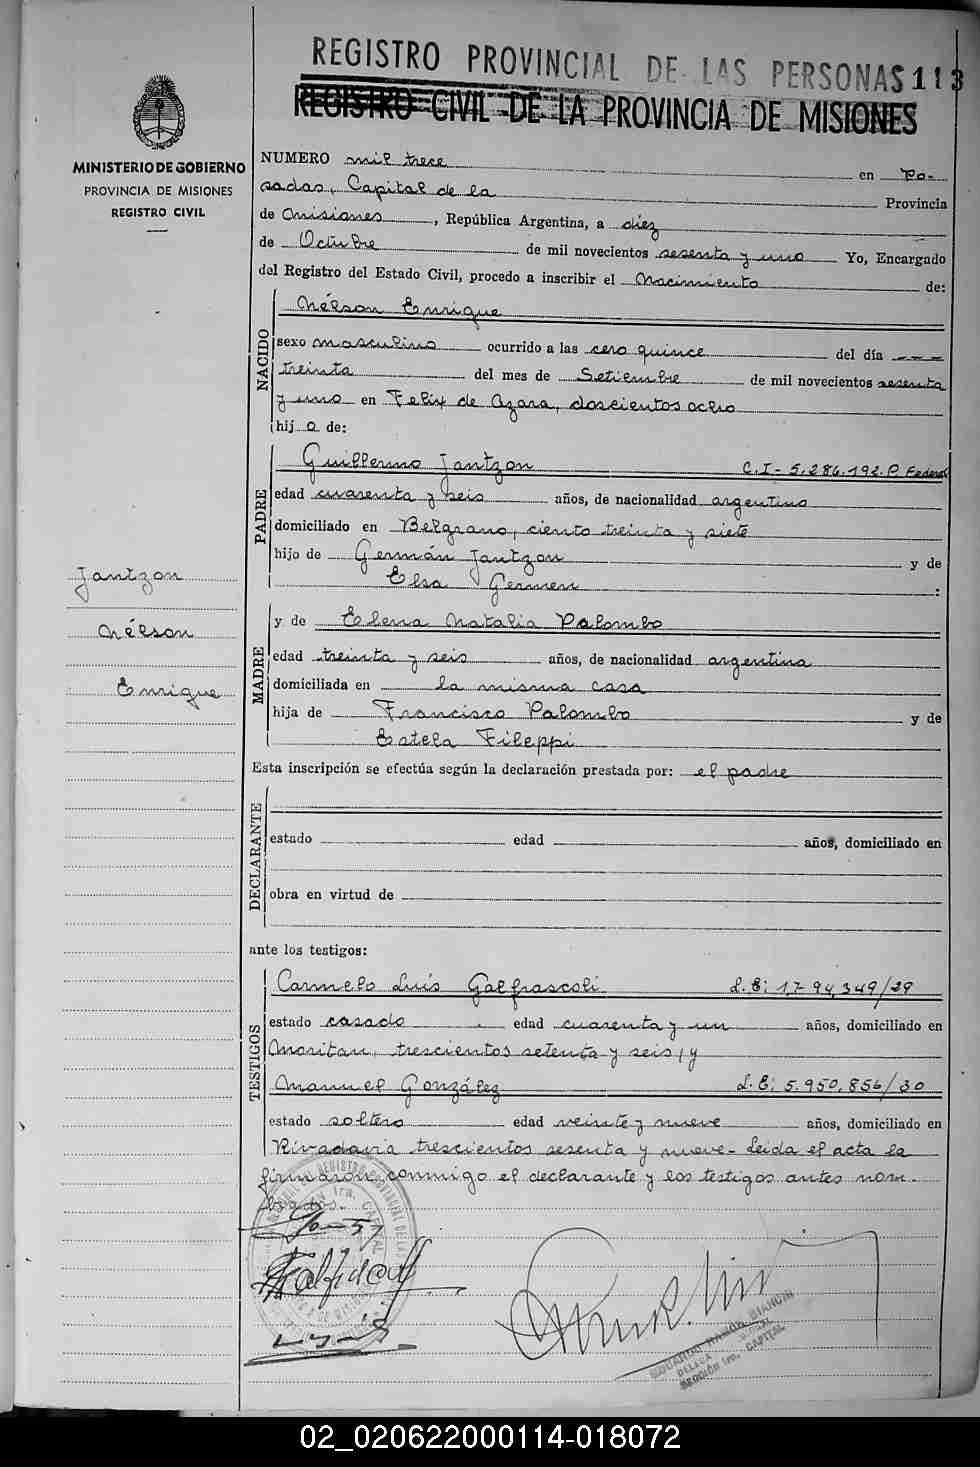 REGISTRO PROVINCIAL DE LAS PERSONAS 113
REGISTRO CIVIL DE LA PROVINCIA DE MISIONES
MINISTERIO DE GOBIERNO
PROVINCIA DE MISIONES
REGISTRO CIVIL
NUMERO mil trece en Po-
sadas, Capital de la Provincia
de Misiones, República Argentina, a diez
de Octubre de mil novecientos sesenta y uno Yo, Encargado
del Registro del Estado Civil, procedo a inscribir el Nacimiento de:
NACIDO
Nélson Enrique
sexo masculino ocurrido a las cero quince del día ---
treinta del mes de Setiembre de mil novecientos sesenta
y uno en Felix de Azara, doscientos ocho
hij o de:
PADRE
Guillermo Jantzon C.I- 5.286.192.P. Federal
edad cuarenta y seis años, de nacionalidad argentino
domiciliado en Belgrano, ciento treinta y siete
hijo de Germán Jantzon y de
Elsa Germen :
Jantzon
Nélson
Enrique
MADRE
y de Elena Natalia Palombo
edad treinta y seis años, de nacionalidad argentina
domiciliada en la misma casa
hija de Francisco Palombo y de
Estela Fileppi
Esta inscripción se efectúa según la declaración prestada por: el padre
DECLARANTE
estado edad años, domiciliado en
obra en virtud de
ante los testigos:
TESTIGOS
Carmelo Luís Galfrascoli L.E: 1794,349/29
estado casado edad cuarenta y un años, domiciliado en
Moritan, trescientos setenta y seis, y
Manuel González L.E: 5.950,856/30
estado soltero edad veinte y nueve años, domiciliado en
Rivadavia trescientos sesenta y nueve- Leida el acta la
firmaron conmigo el declarante y los testigos antes nom-
brados.-
EDUARDO RAMON BIANCHI
SECCIÓN 1ra. CAPITAL
02_020622000114-018072